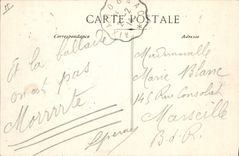 CARTE POSTALE
Correspondance
Et la ballade
on est pas
Morrrrte
Mademoiselle
Marie Blanc
145 Rue Consolat
Marseille
B.d.R.